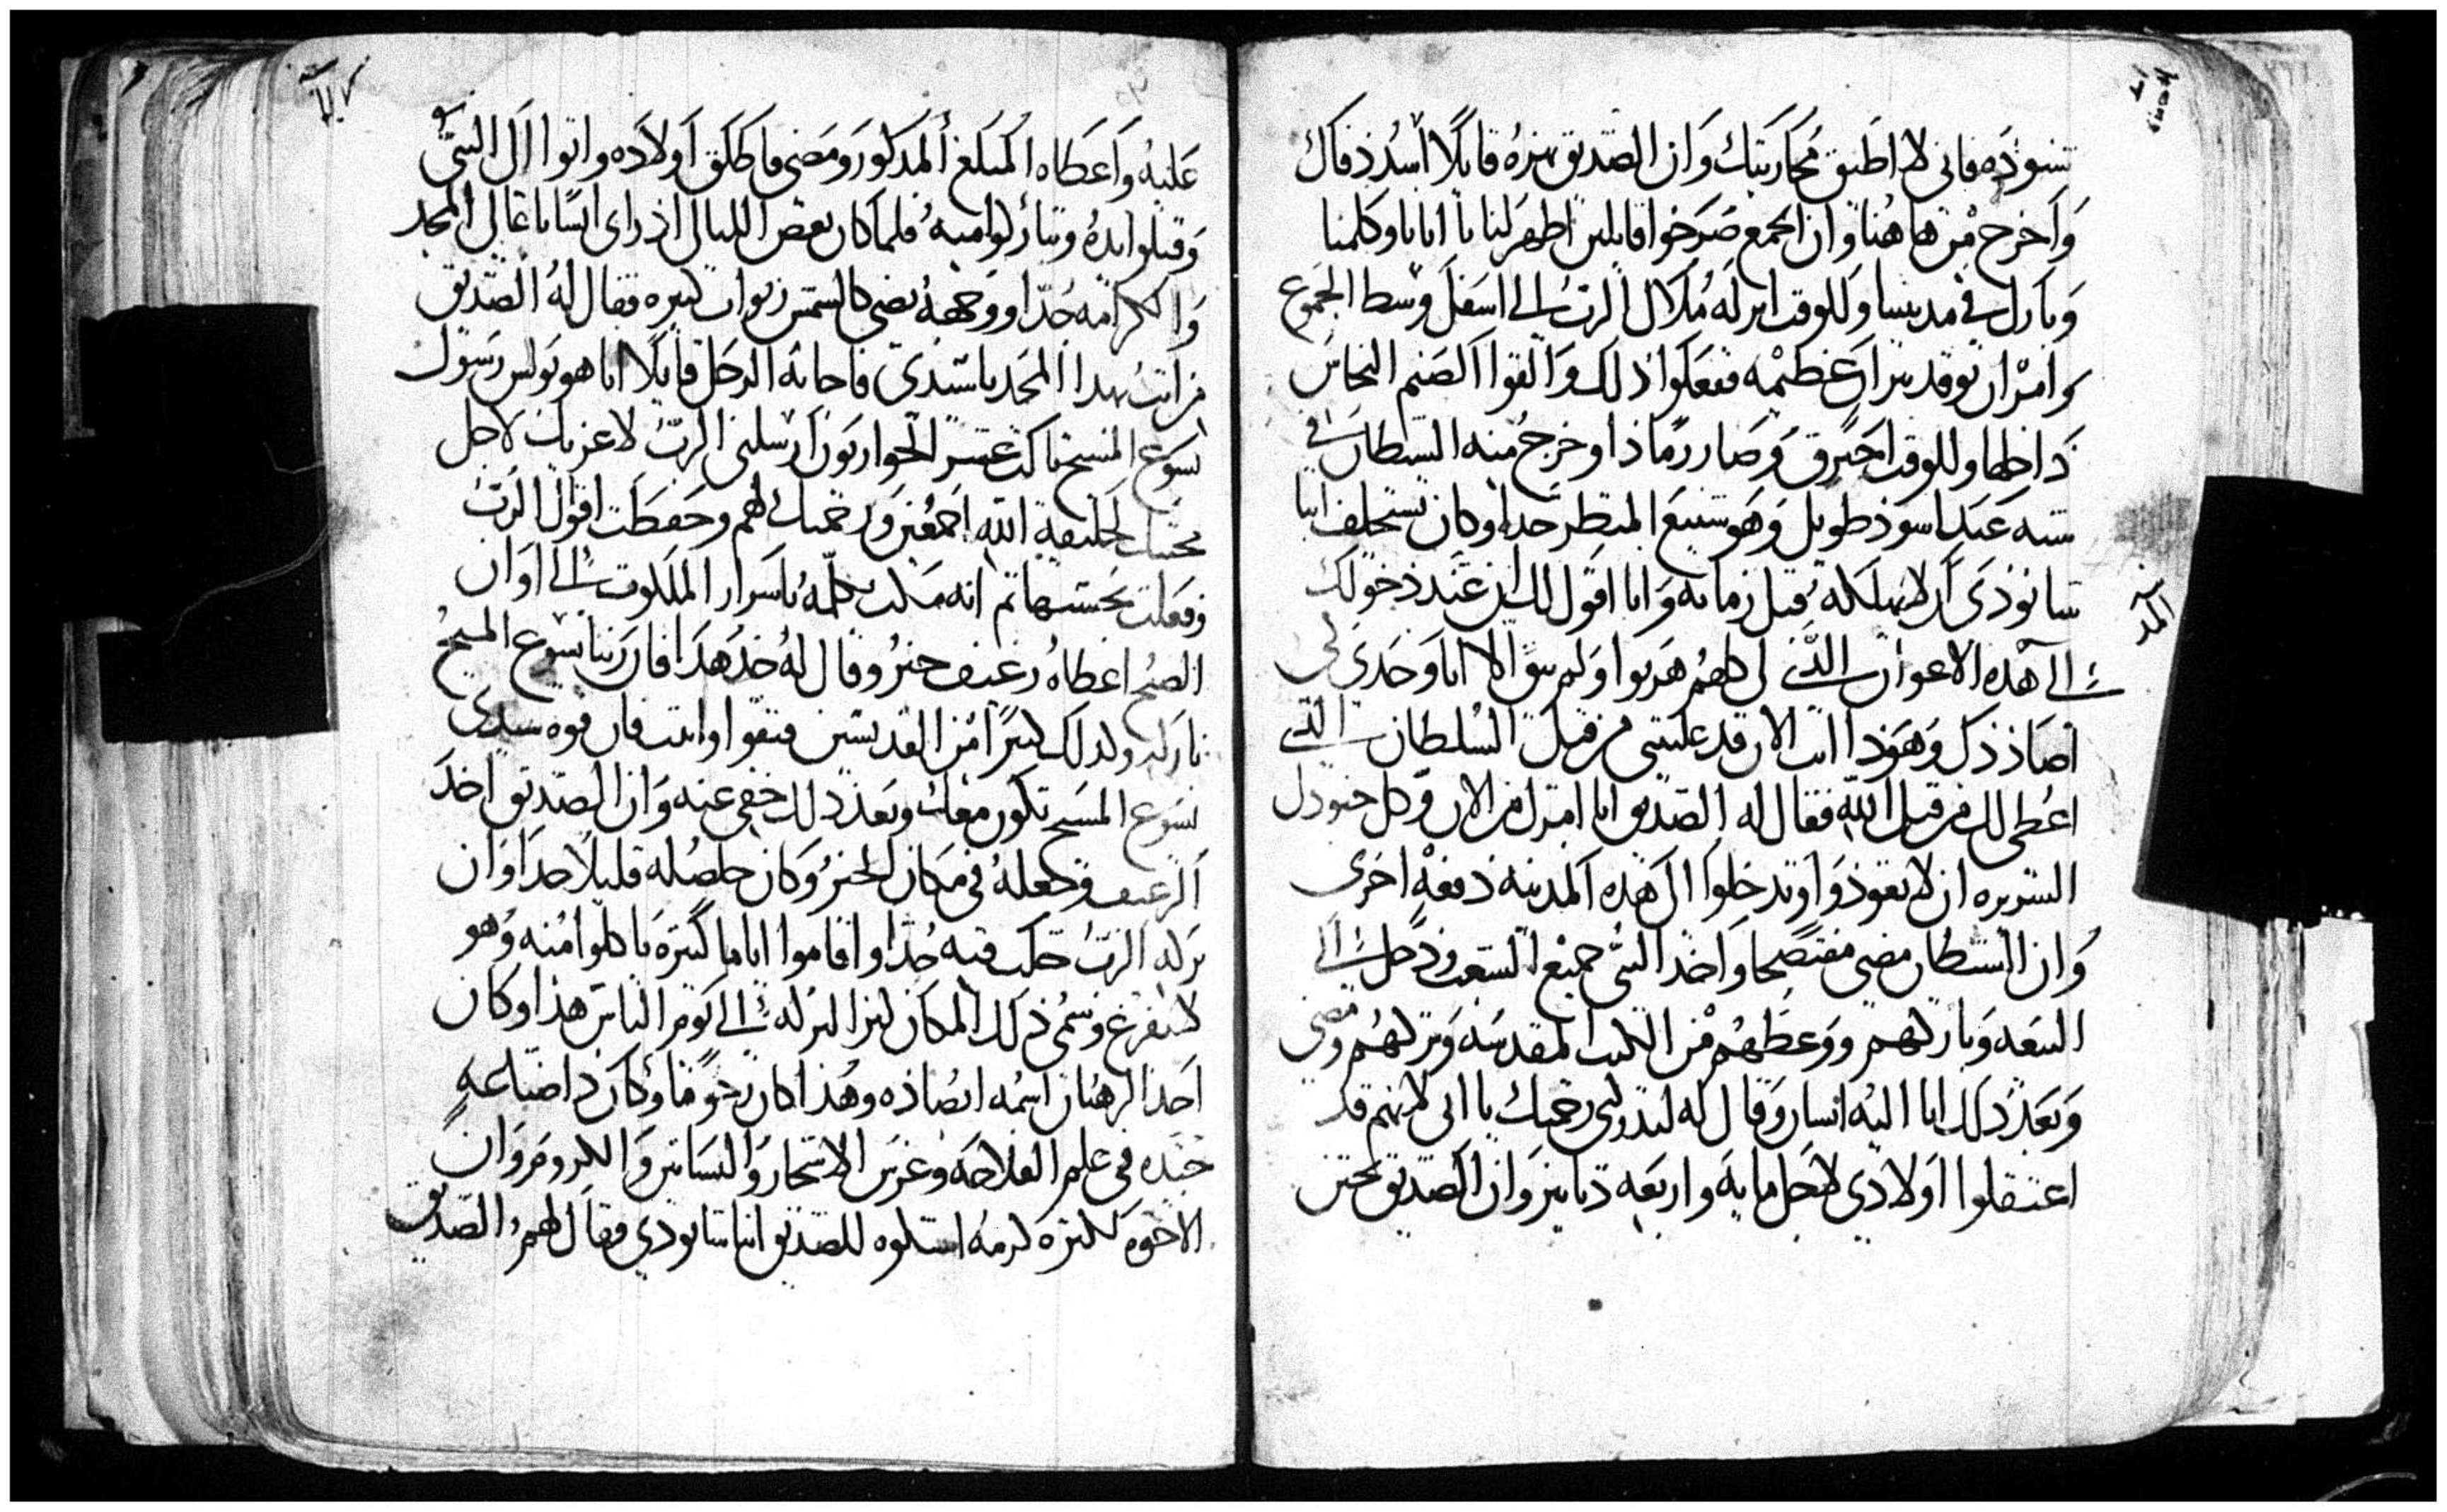 شنوذه فانى لا اطيق محاربتك وان الصديق نهزه قايلا اسدد فاك
واخرج من هاهنا وان الجمع صرخوا قايلين اطهر لنا يا ابانا وكلمنا
وبارك في مدينتنا وللوقت انزله ملاك الرب الى اسفل وسط الجموع
وامر ان توقد نيرا عظيمه ففعلوا ذلك والقوا الصنم النحاس
داخلها وللوقت احترق وصار رماذا وخرج منه الشيطان في
شبه عبد اسوذ طويل وهو شنيع المنظر جدا وكان يستحلف انبا
شانوذى ان لا يهلكه قبل زمانه وانا اقول لك ان عند ذخولك
الى هذه الاعوان الذي لى كلهم هربوا ولم يبق الا انا وحدى
وهوذا انت الان قد غلبتنى من قبل السلطان الذي
اعطى لك من قبل الله فقال له الصديق انا امرك من الان وكل جنودك
الشريره ان لا تعوذوا وتدخلوا الى هذه المدينه ذفعه اخرى
وان الشيطان مضى مفتضحا واخذ النبى جميع الشعب ودخل الى
البيعه وباركهم ووعظهم من الكتب المقدسه وتركهم ومضى
وبعد ذلك اتا اليه انسان وقال له لتدركنى رحمتك يا ابى لانهم قد
اعتقلوا اولادي لاجل مايه واربعه دنانير وان الصديق تحنن
عليه واعطاه المبلغ المذكور ومضى فاطلق اولاده واتوا الى النبى
وقبلوا يده وتباركوا منه فلما كان بعض الليالى اذ راى انسانا عالى المجد
والكرامه جدا ووجهه يضى كالشمس زيوات كبيره فقال له الصديق
من انت بهذا المجد يا سيدي فاجابه الرجل قايلا انا هو بولس رسول
يسوع المسيح عشر الحواريون ارسلنى الرب لاعزيك لاجل
محبتك لخليقة الله اجمعين ورحمتك لهم وحفظت اقوال الرب
وفعلت بحسبها ثم انه مكث يكلمه باسرار الملكوت الى اوان
الصبح اعطاه رغيف خبز وقال له خذ هذا فان ربنا يسوع المسيح
باركه وكذلك كثيرا من القديسين فتقوا وانت فان قوه سيدى
يسوع المسيح تكون معك وبعد ذلك خفى عنه وان الصديق اخذ
الرغيف وجعله في مكان الخبز وكان حاصله قليلا جدا وان
بركه الرب حلت فيه جدا واقاموا اياما كثيره ياكلوا منه وهو
لا يفرغ وسمى ذلك المكان كنز البركه الى يوم الناس هذا وكان
احد الرهبان اسمه ابصاذه وهذا كان رحوما وكان ذا صناعه
جيده في علم الفلاحه وغرس الاشجار والبساتين والكروم وان
الاخوه لكثره كرمه اشتكوه للصديق انبا شانودي فقال لهم الصديق